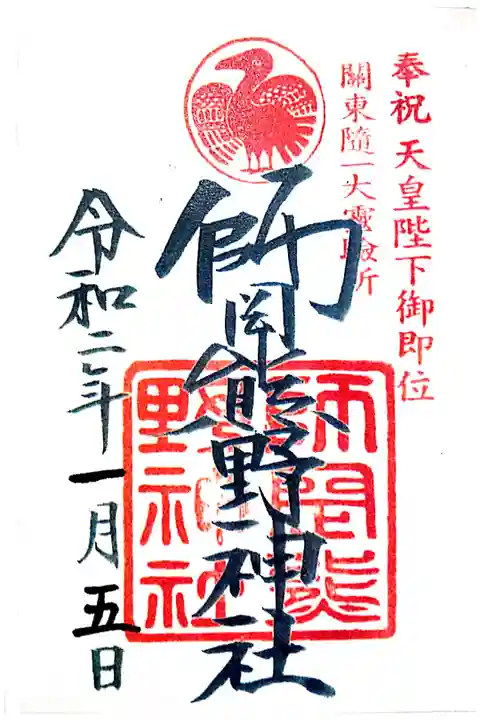 奉祝 天皇陛下御即位
關東隨一大靈驗所
師岡熊野神社
令和二年一月五日
師岡熊
野神社